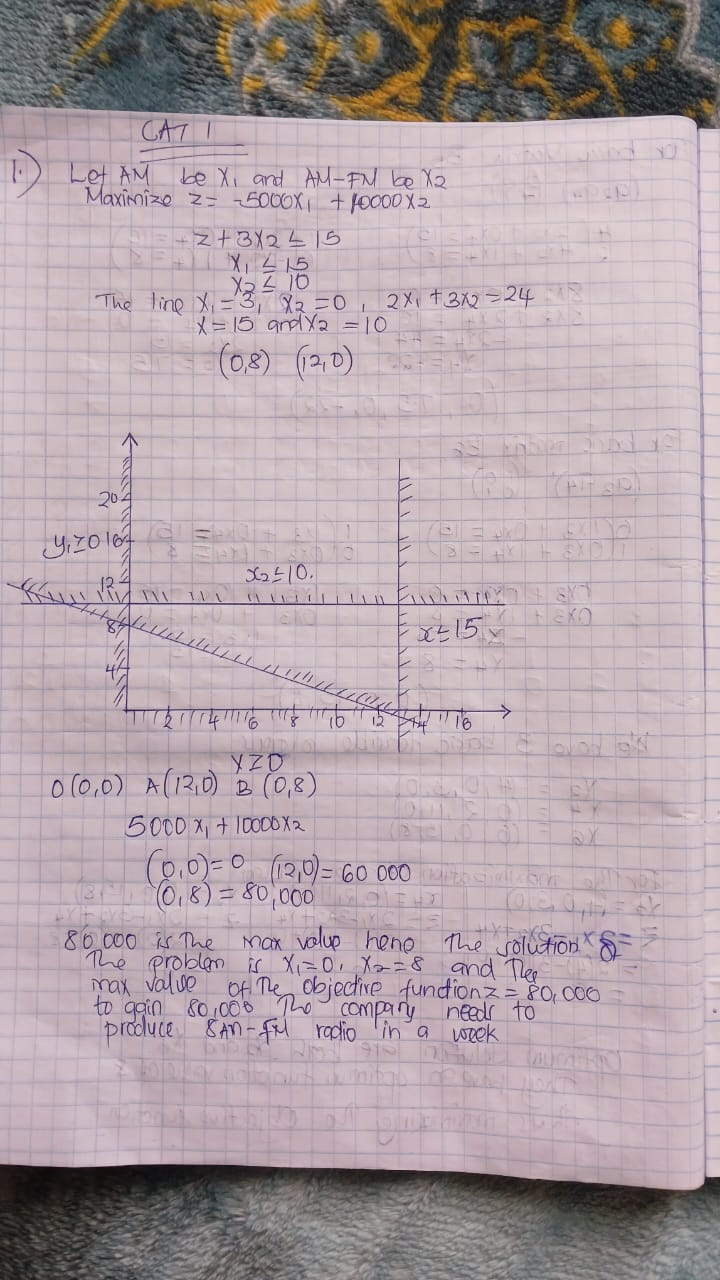 CAT 1
1.) Let AM be X₁ and AM-FM be X2
Maximize Z= -5000X₁ + 10000X2
-Z+3X2 ≤ 15
X₁ ≤ 15
X2 ≤ 10
The line X₁=3, X2=0, 2X₁+3X2=24
X=15 and X2 =10
(0,8) (12,0)
20
y₁≥0 16
x2≤10.
12
8
x≤15
4
2 4 6 8 10 12 14 16
Y≥0
O(0,0) A(12,0) B(0,8)
5000x₁+10000X2
(0,0)=0 (12,0)=60 000
(0,8)=80,000
80,000 is The max value hene The solution
The problem is X₁=0, X2=8 and The
max value of The objective function z=80,000
to gain 80,000 The company needs to
produce 8AM-FM radio in a week